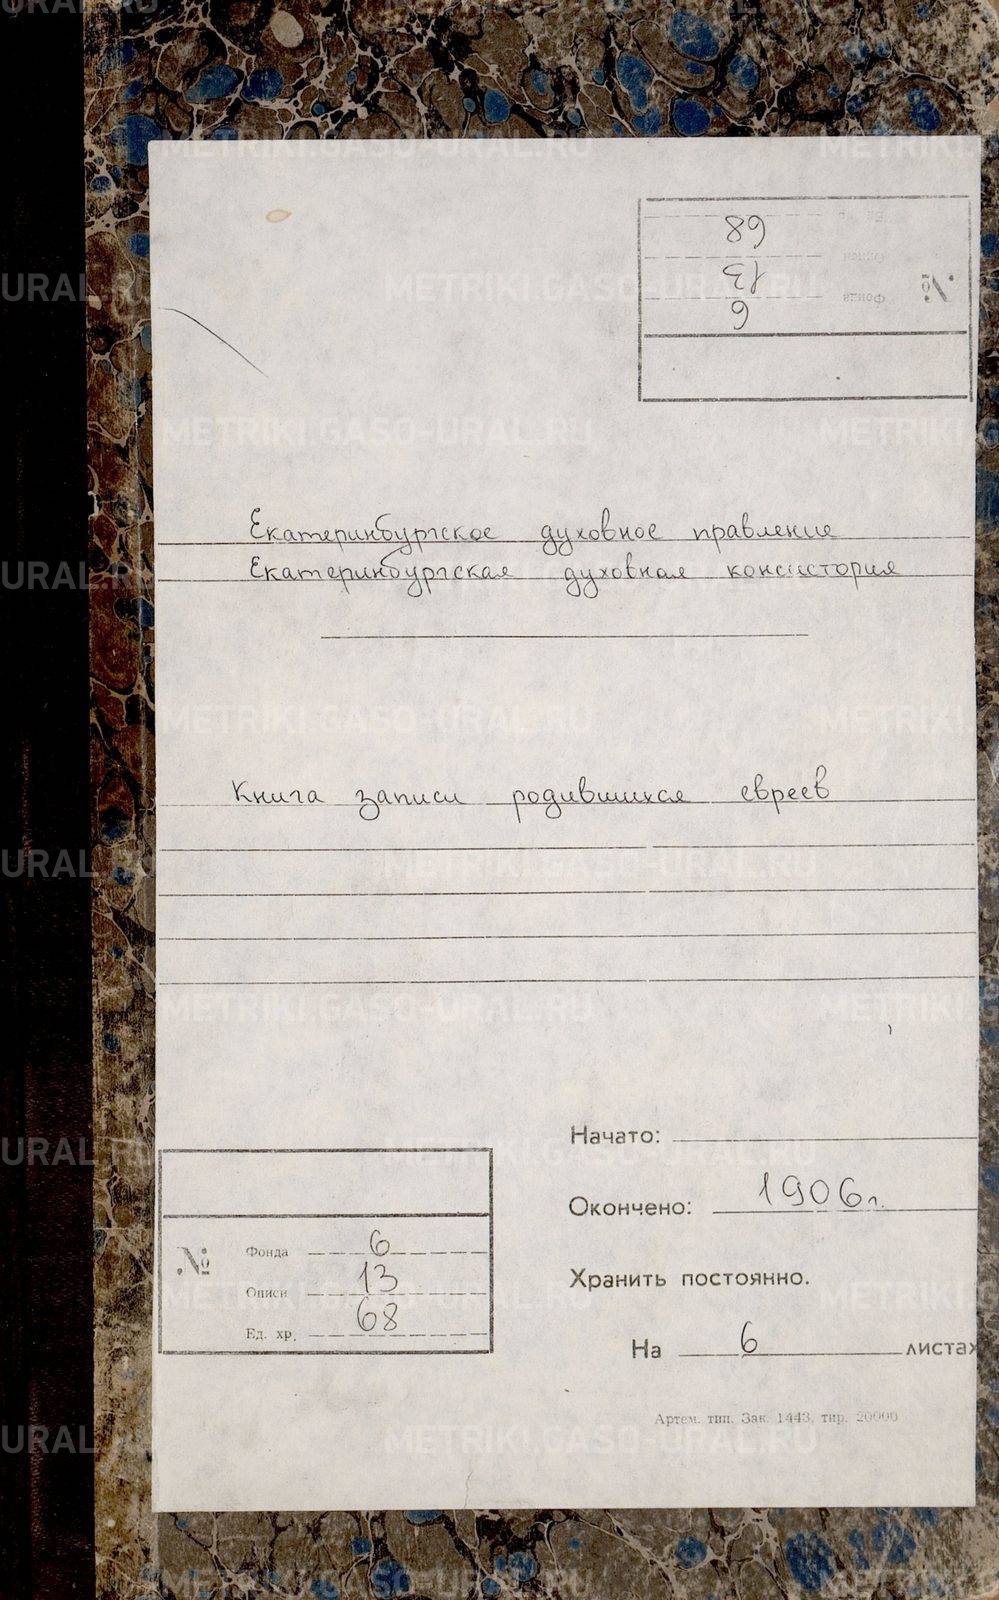 №
Фонда 6
Описи 13
Ед. хр. 68
Екатеринбургское духовное правление
Екатеринбургская духовная консистория
Книга записи родившихся евреев
Начато:
Окончено: 1906г.
Хранить постоянно.
На 6 листах
№
Фонда 6
Описи 13
Ед. хр. 68
Артем. тип. Зак. 1443, тир. 20000
METRIKI.GASO-URAL.RU